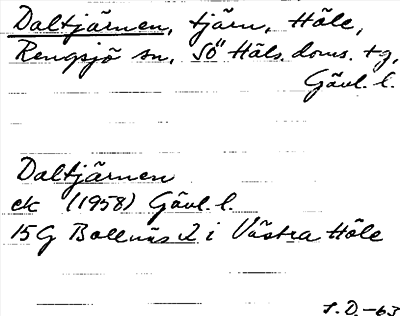 Daltjärnen, tjärn, Höle,
Rengsjö sn, Sö Häls. doms. tg,
Gävl. l.
Daltjärnen
ek (1958) Gävl. l.
15G Bollnäs 2 i Västra Höle
S.D.-63